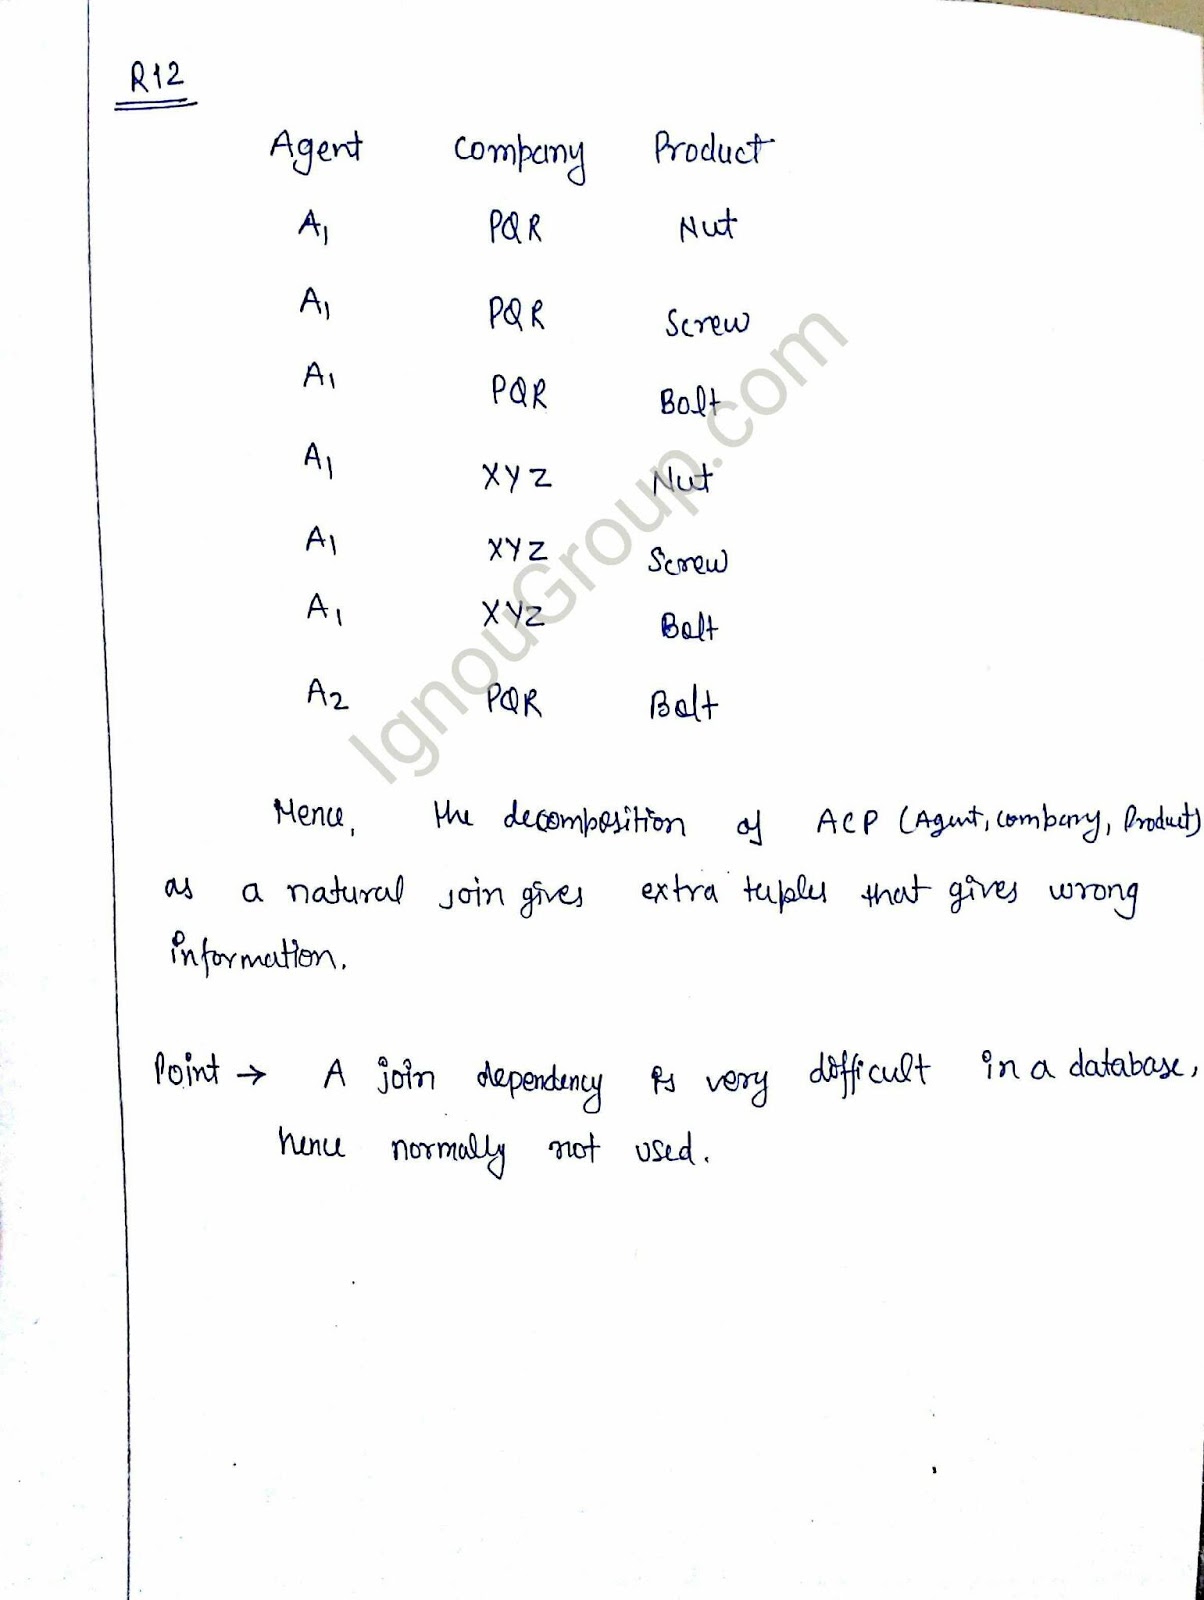 R12
Agent Company Product
A1 PQR Nut
A1 PQR Screw
A1 PQR Bolt
A1 XYZ Nut
A1 XYZ Screw
A1 XYZ Bolt
A2 PQR Bolt
IgnouGroup.com
Hence, the decomposition of ACP (Agent, Company, Product)
as a natural join gives extra tuples that gives wrong
information.
Point → A join dependency is very difficult in a database,
hence normally not used.